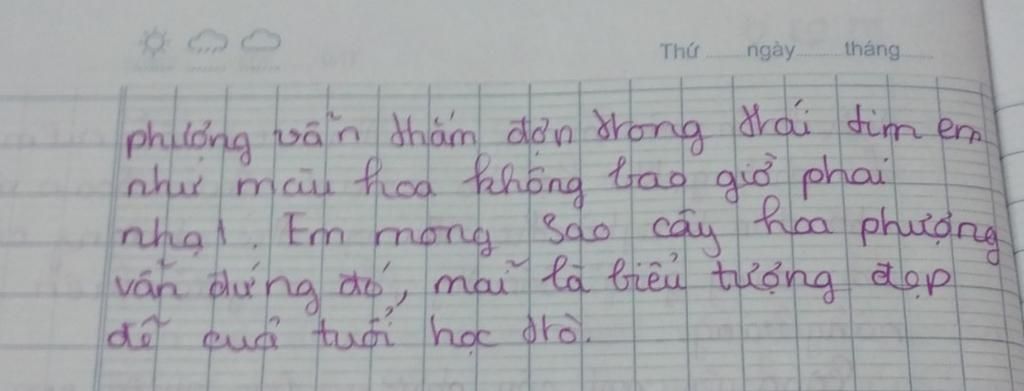 Thứ ngày tháng
phượng vẫn thắm đợn trong trái tim em
như màu hoa không bao giờ phai
nhạt. Em mong sao cây hoa phượng
vẫn đứng đó, mãi là biểu tượng đẹp
đẽ của tuổi học trò.